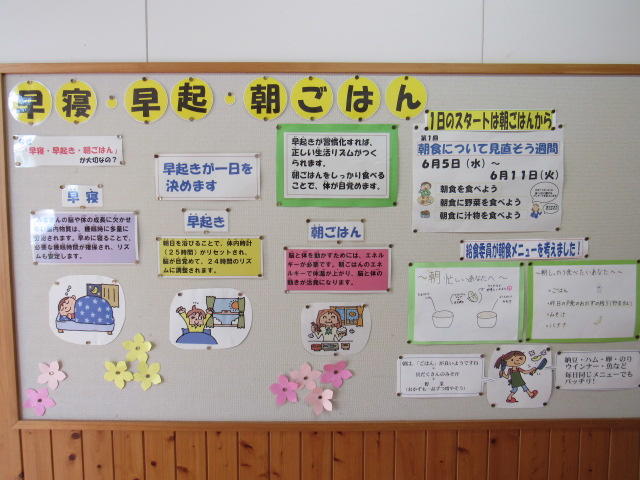 早寝・早起・朝ごはん
「早寝・早起き・朝ごはん」
が大切なの？
早寝
さんの脳や体の成長に欠かせ
脳内物質は、睡眠時に多量に
分泌されます。早めに寝ることで、
必要な睡眠時間が確保され、リズ
ムも安定します。
早起きが一日を
決めます
早起き
朝日を浴びることで、体内時計
（２５時間）がリセットされ、
脳が目覚めて、２４時間のリズム
に調整されます。
早起きが習慣化すれば、
正しい生活リズムがつく
られます。
朝ごはんをしっかり食べる
ことで、体が目覚めます。
朝ごはん
脳と体を動かすためには、エネル
ギーが必要です。朝ごはんのエネ
ルギーで体温が上がり、脳と体の
動きが活発になります。
１日のスタートは朝ごはんから
第１回
朝食について見直そう週間
６月５日（水）～
６月１１日（火）
朝食を食べよう
朝食に野菜を食べよう
朝食に汁物を食べよう
給食委員が朝食メニューを考えました！
～朝忙しいあなたへ～
～朝しっかり食べたいあなたへ～
・ごはん
・みそ汁
・バナナ
朝は、「ごはん」が良いようですね
具だくさんのみそ汁
野菜
（おかずも一品ずつ増やそう）
納豆・ハム・卵・のり
ウインナー・魚など
毎日同じメニューでも
バッチリ！